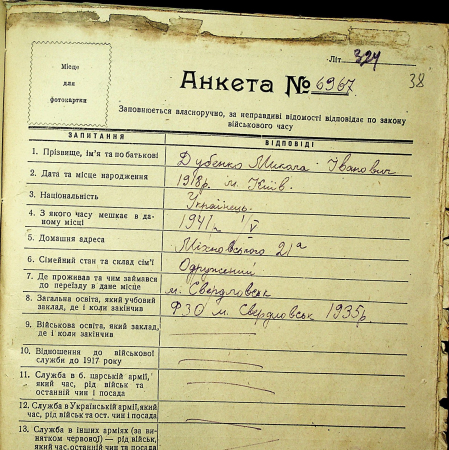 Літ. 324
38
Місце
для
фотокартки
Анкета № 6967
Заповнюється власноручно, за неправдиві відомості відповідає по закону
військового часу
ЗАПИТАННЯ
ВІДПОВІДІ
1. Прізвище, ім'я та по батькові
Дубенко Микола Іванович
2. Дата та місце народження
1918р. м. Київ.
3. Національність
Українець.
4. З якого часу мешкає в да-
ному місці
1941 V
5. Домашня адреса
Міхновського 21а
6. Сімейний стан та склад сім'ї
Одружений
7. Де проживав та чим займався
до переїзду в дане місце
м. Свердловськ
8. Загальна освіта, який учбовий
заклад, де і коли закінчив
ФЗО м. Свердловськ 1935р
9. Військова освіта, який заклад,
де і коли закінчив
10. Відношення до військової
служби до 1917 року
11. Служба в б. царській армії,
який час, рід військ та
останній чин і посада
12. Служба в Українській армії, який
час, рід військ та ост. чин і посада
13. Служба в інших арміях (за ви-
нятком червоної) — рід військ,
який час, останній чин та посада